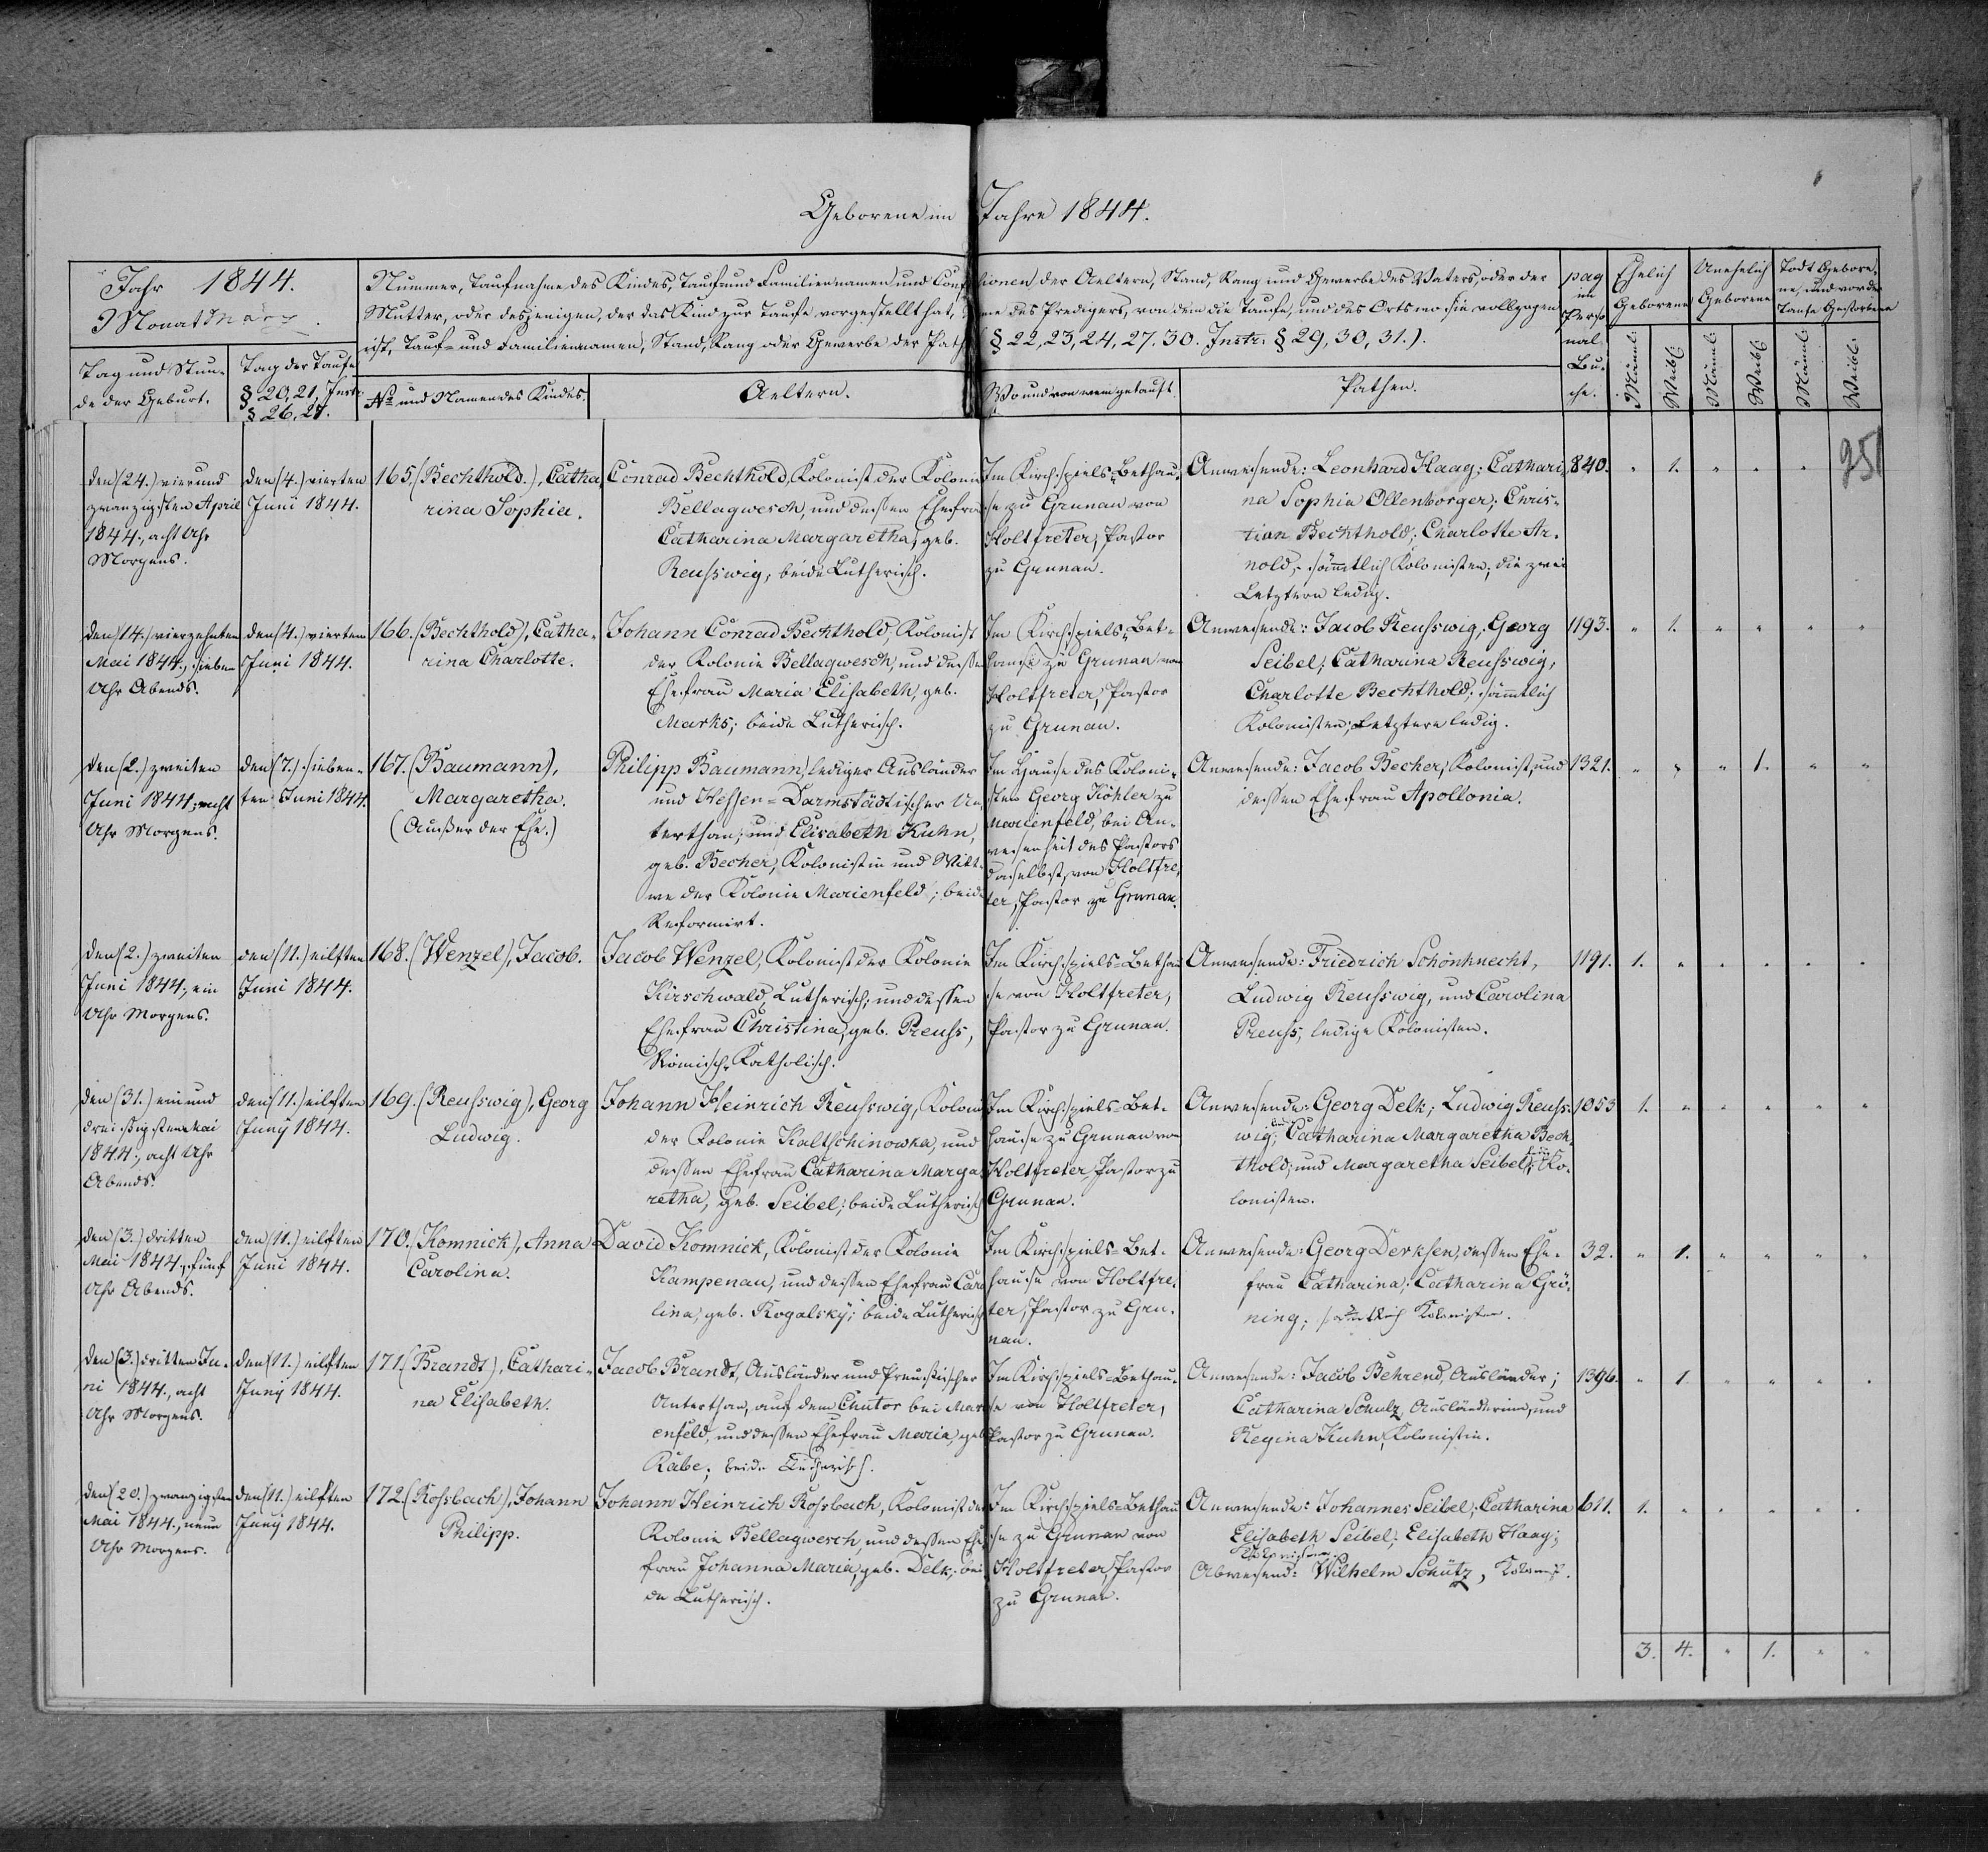 Geborene im Jahre 1844.
Jahr 1844.
Monat März.
Nummer, Taufnahme des Kindes, Tauf- und Familiennamen und Confessionen der Aeltern, Stand, Rang und Gewerbe des Vaters, oder der
Mutter, oder desjenigen, der das Kind zur Taufe vorgestellt hat, des Predigers, von dem die Taufe, und des Orts wo sie vollzogen
ist, Tauf- und Familiennamen, Stand, Rang oder Gewerbe der Pathen § 22, 23, 24, 27. 30. Instr. § 29, 30, 31.).
Tag und Stun-
de der Geburt.
Tag der Taufe
§ 20, 21, Instr.
§ 26, 27.
No und Namen des Kindes.
Aeltern.
Wo und von wem getauft.
Pathen.
pag
im
Perso
nal
Bu-
che.
Ehelich
Geborene
Unehelich
Geborene
Todt Gebore-
ne, und vor der
Taufe Gestorbene
Männl:
Weibl:
Männl:
Weibl:
Männl:
Weibl:
251
den (24.) vierund
zwanzigsten April
1844., acht Uhr
Morgens.
den (4.) vierten
Juni 1844.
165. (Bechthold.), Catha-
rina Sophia.
Conrad Bechthold, Kolonist der Kolonie
Bellagwesch, und dessen Ehefrau
Catharina Margaretha, geb.
Reusswig; beide Lutherisch.
Im Kirchspiels-Bethau-
se zu Grunau von
Holtfreter, Pastor
zu Grunau.
Anwesende: Leonhard Haag; Cathari-
na Sophia Ollenborger; Chris-
tian Bechthold; Charlotte Ar-
nold, sämmtlich Kolonisten; die zwei
Letztern ledig.
840. " 1. " " "
den (14.) vierzehnten
Mai 1844., sieben
Uhr Abends.
den (4.) vierten
Juni 1844.
166. (Bechthold), Catha-
rina Charlotte.
Johann Conrad Bechthold, Kolonist
der Kolonie Bellagwesch, und dessen
Ehefrau Maria Elisabeth, geb.
Marks; beide Lutherisch.
Im Kirchspiels-Bet-
hause zu Grunau von
Holtfreter, Pastor
zu Grunau.
Anwesende: Jacob Reusswig; Georg
Seibel; Catharina Reusswig;
Charlotte Bechthold; sämmtlich
Kolonisten; Letztere ledig.
1193. " 1. " " " "
den (2.) zweiten
Juni 1844; acht
Uhr Morgens.
den (7.) sieben-
ten Juni 1844.
167. (Baumann),
Margaretha.
(Außer der Ehe.)
Philipp Baumann, lediger Ausländer
und Hessen-Darmstädtischer Un-
terthan; und Elisabeth Kuhn,
geb. Becher, Kolonistin und Witt-
we der Kolonie Marienfeld; beide
Reformirt.
Im Hause des Koloni-
sten Georg Köhler zu
Marienfeld, bei An-
wesenheit des Pastors
daselbst, von Holtfre-
ter, Pastor zu Grunau.
Anwesende: Jacob Becher, Kolonist, und
dessen Ehefrau Apollonia.
1321. " " " 1. " "
den (2.) zweiten
Juni 1844., ein
Uhr Morgens.
den (11.) eilften
Juni 1844.
168. (Wenzel), Jacob.
Jacob Wenzel, Kolonist der Kolonie
Kirschwald, Lutherisch; und dessen
Ehefrau Christina, geb. Preuss,
Römisch-Katholisch.
Im Kirchspiels-Bethau-
se von Holtfreter,
Pastor zu Grunau.
Anwesende: Friedrich Schönknecht,
Ludwig Reusswig, und Carolina
Preuss, ledige Kolonisten.
1191. 1. " " " " "
den (31.) einund
dreissigsten Mai
1844., acht Uhr
Abends.
den (11.) eilften
Juny 1844.
169. (Reusswig), Georg
Ludwig.
Johann Heinrich Reusswig, Kolonist
der Kolonie Kaltschinowka, und
dessen Ehefrau Catharina Marga
retha, geb. Seibel; beide Lutherisch
Im Kirchspiels-Bet-
hause zu Grunau von
Holtfreter, Pastor zu
Grunau.
Anwesende: Georg Delk; Ludwig Reuss-
wig; Catharina Margaretha Bech-
thold; und Margaretha Seibel; Ko-
lonisten.
1053 1. " " " " "
den (3.) dritten
Mai 1844., fünf
Uhr Abends.
den (11.) eilften
Juni 1844.
170. (Komnick), Anna
Carolina.
David Komnick, Kolonist der Kolonie
Kampenau, und dessen Ehefrau Caro
lina, geb. Rogalsky; beide Lutherisch
Im Kirchspiels-Bet-
hause von Holtfre-
ter, Pastor zu Gru-
nau.
Anwesende: Georg Derksen, dessen Ehe-
frau Catharina; Catharina Grö-
ning; sämmtlich Kolonisten.
32. " 1. " " " "
den (3.) dritten Ju-
ni 1844., acht
Uhr Morgens.
den (11.) eilften
Juny 1844.
171. (Brandt), Cathari-
na Elisabeth.
Jacob Brandt, Ausländer und Preussischer
Unterthan, auf dem Chutor bei Mari
enfeld, und dessen Ehefrau Maria, geb.
Rabe; beide Lutherisch.
Im Kirchspiels-Bethau-
se von Holtfreter,
Pastor zu Grunau.
Anwesende: Jacob Behrend, Ausländer;
Catharina Schulz, Ausländerinn, und
Regina Kuhn, Kolonistin.
1396. " 1 " " " "
den (20.) zwanzigsten
Mai 1844., neun
Uhr Morgens.
den (11.) eilften
Juny 1844.
172. (Rossbach), Johann
Philipp.
Johann Heinrich Rossbach, Kolonist der
Kolonie Bellagwesch, und dessen Ehe
frau Johanna Maria, geb. Delk; bei
de Lutherisch.
Im Kirchspiels-Bethau
se zu Grunau von
Holtfreter, Pastor
zu Grunau.
Anwesende: Johannes Seibel; Catharina
Elisabeth Seibel; Elisabeth Haag;
Abwesend: Wilhelm Schütz, Kolonist.
611. 1. " " " " "
3. 4. " 1. " "